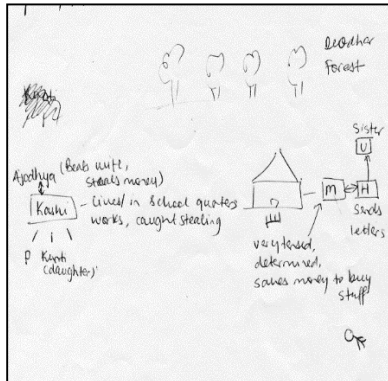 Deodhar
Forest
Sister
U
Ajodhya (Beats wife,
steals money)
Kashi
Lives/in School quarters
works, caught stealing
P Kunti
(daughters)
M
H
Sends
letters
very tensed,
determined,
saves money to buy
stuff